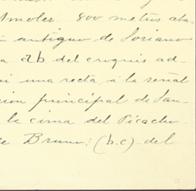 Amoles. 800 metros aba
i antiguo de Soriano
a a b del croquis ad-
ni una recta á la señal
cion principal de San
la cima del Picacho
te Bruno: (b.c) del